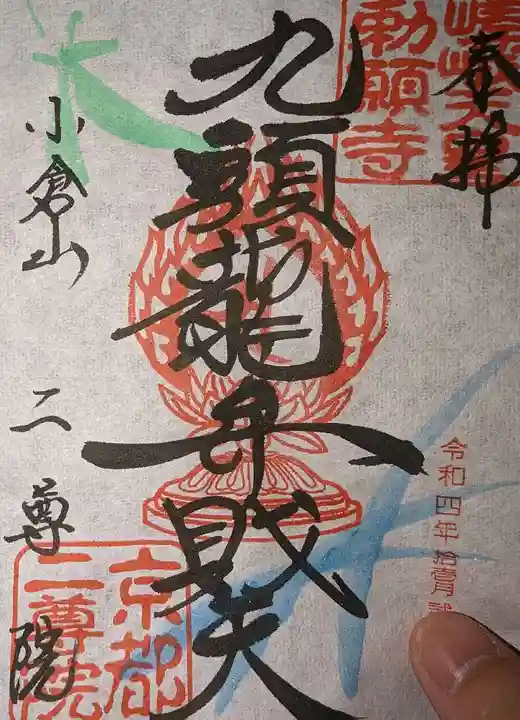 奉拝
嵯峨天皇
勅願寺
九頭龍弁財天
令和四年拾壹月
小倉山 二尊院
京都
二尊院